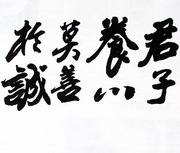 君子
養心
莫善
於誠